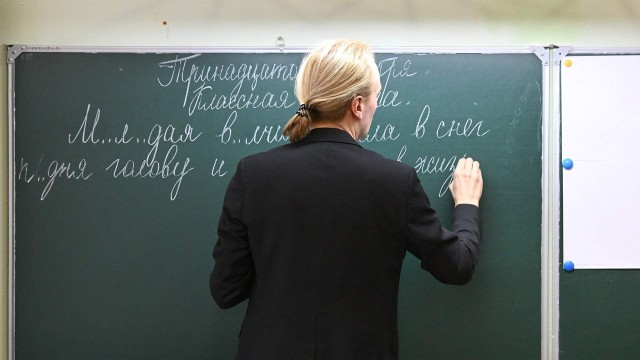 Тринадцато ря
Классная а.
М..л..дая в..лчи ла в снег
п..дня голову и в жиз